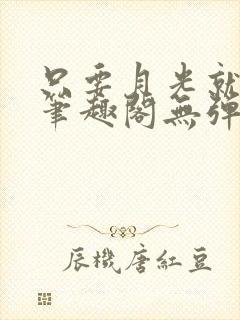 只要月光就
筆趣閣無彈
辰機唐紅豆